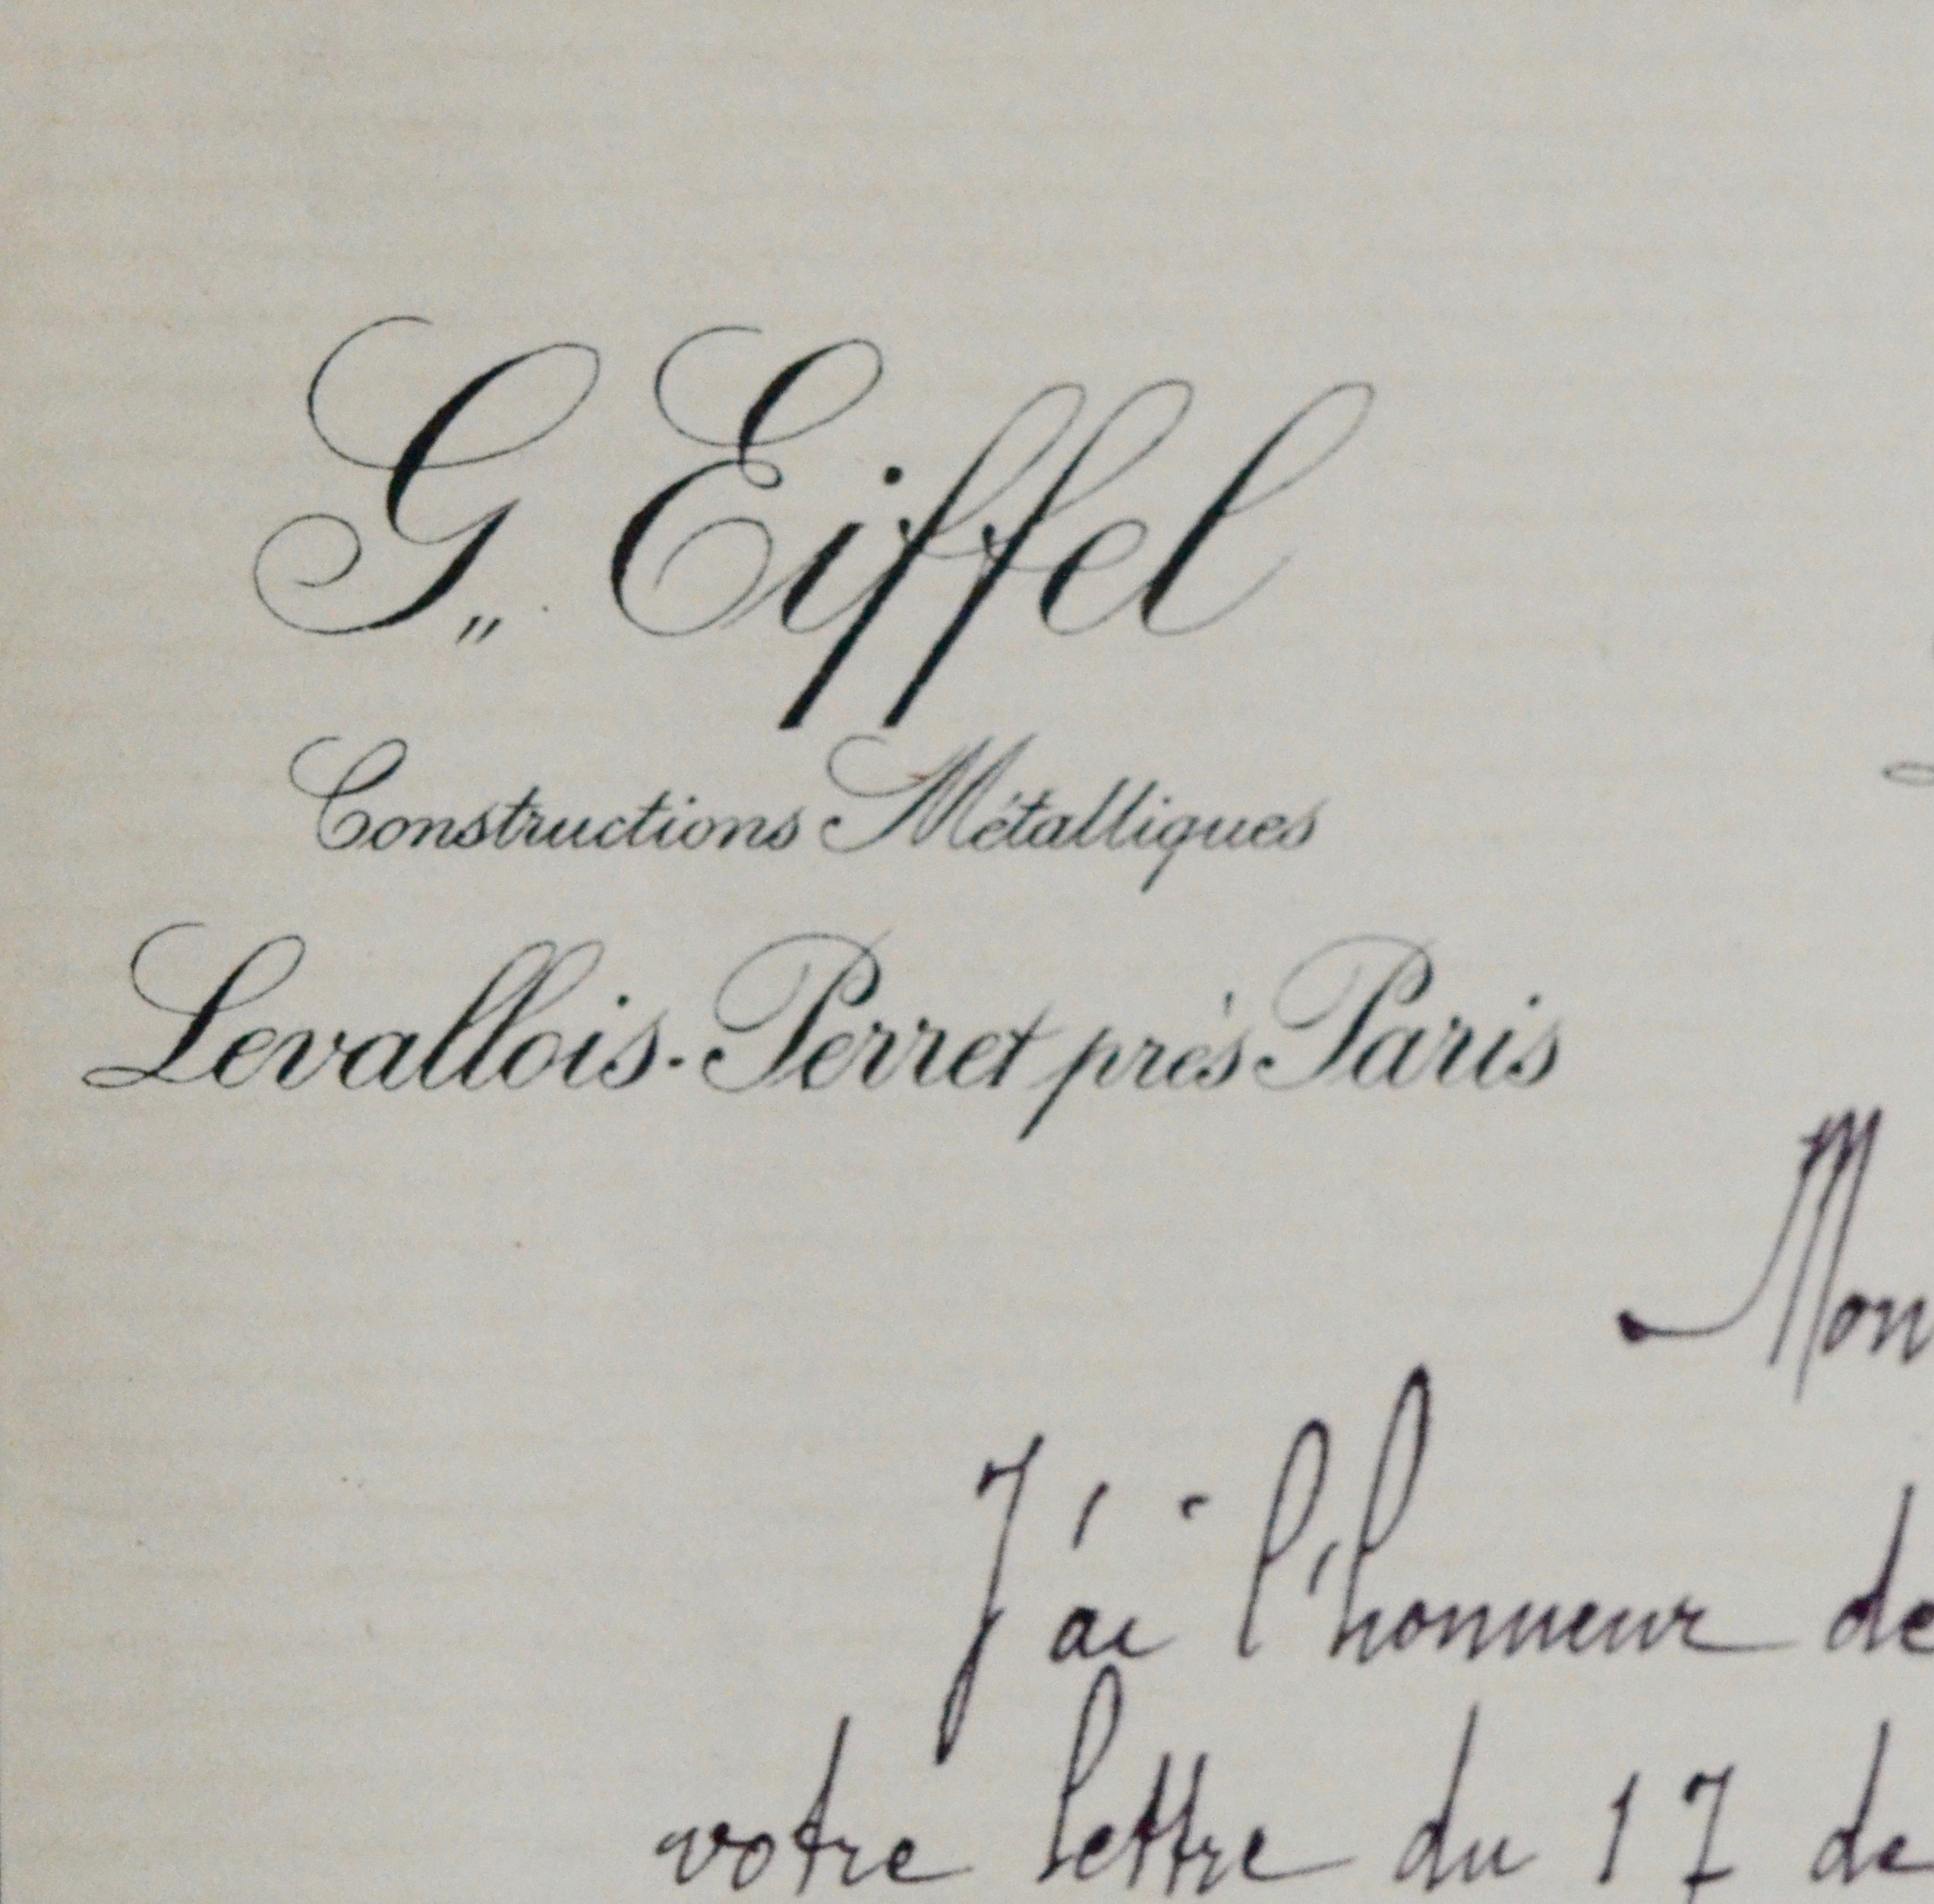 G„ Eiffel
Constructions Métalliques
Levallois-Perret près Paris
Mon
J'ai l'honneur de
votre lettre du 17 de